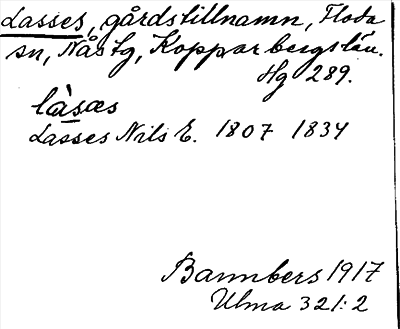 Lasses, gårdstillnamn, Floda
sn, Nås tg, Kopparbergs län.
Hg 289.
làsæs
Lasses Nils E. 1807 1834
Bannbers 1917
Ulma 321:2